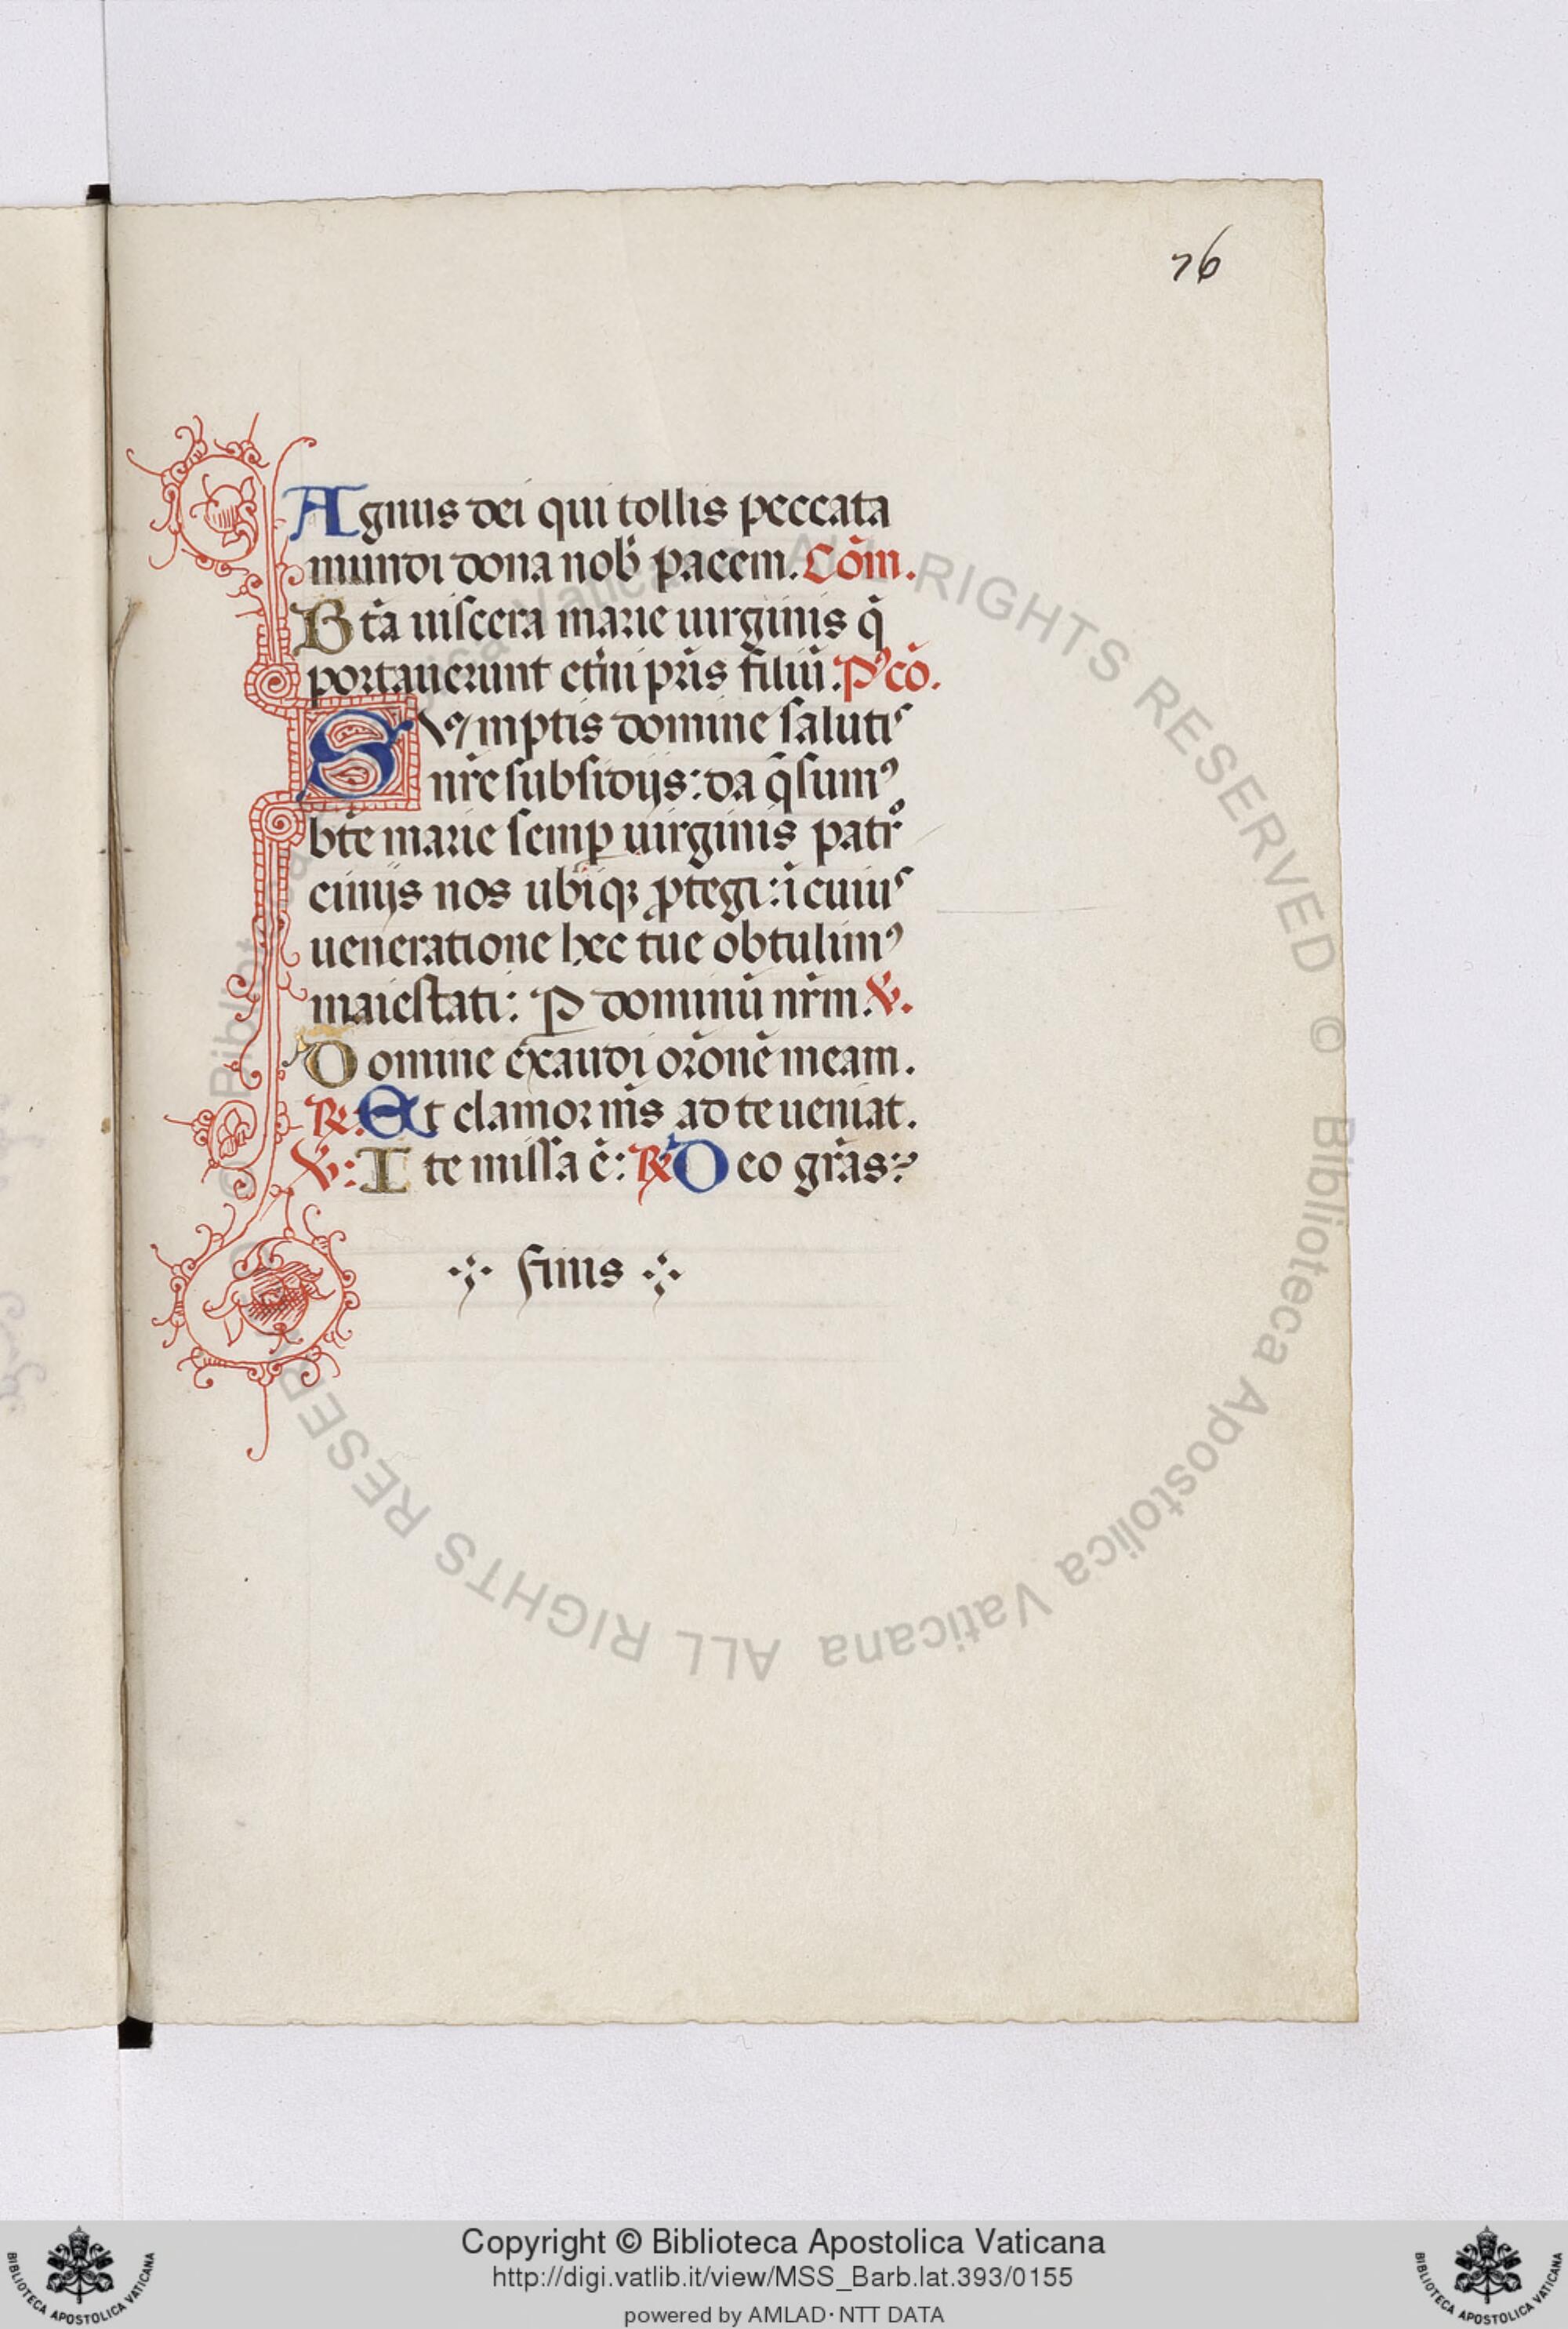 76
Agnus dei qui tollis peccata
mundi dona nob̾ pacem. Cōm.
Btā uiscera marie uirginis q̄
portauerunt et̾ni pr̄is filiū. P'cō.
SVmptis domine salutis
nr̄e subsidijs: da q̄sumꝰ
bt̄e marie semꝑ uirginis patrº
cinijs nos ubiqꝫ ꝓtegi: ī cuius
ueneratione hec tue obtulimꝰ
maiestati: Ꝑ dominū nr̄m. ℣.
Domine exaudi orōnē meam.
℟. Et clamor m̄s ad te ueniat.
℣: Ite missa ē: ℟ Deo gr̄as:
finis
© Biblioteca Apostolica Vaticana ALL RIGHTS RESERVED © Biblioteca Apostolica Vaticana ALL RIGHTS RESERVED
Copyright © Biblioteca Apostolica Vaticana
http://digi.vatlib.it/view/MSS_Barb.lat.393/0155
powered by AMLAD·NTT DATA
BIBLIOTECA APOSTOLICA VATICANA
BIBLIOTECA APOSTOLICA VATICANA